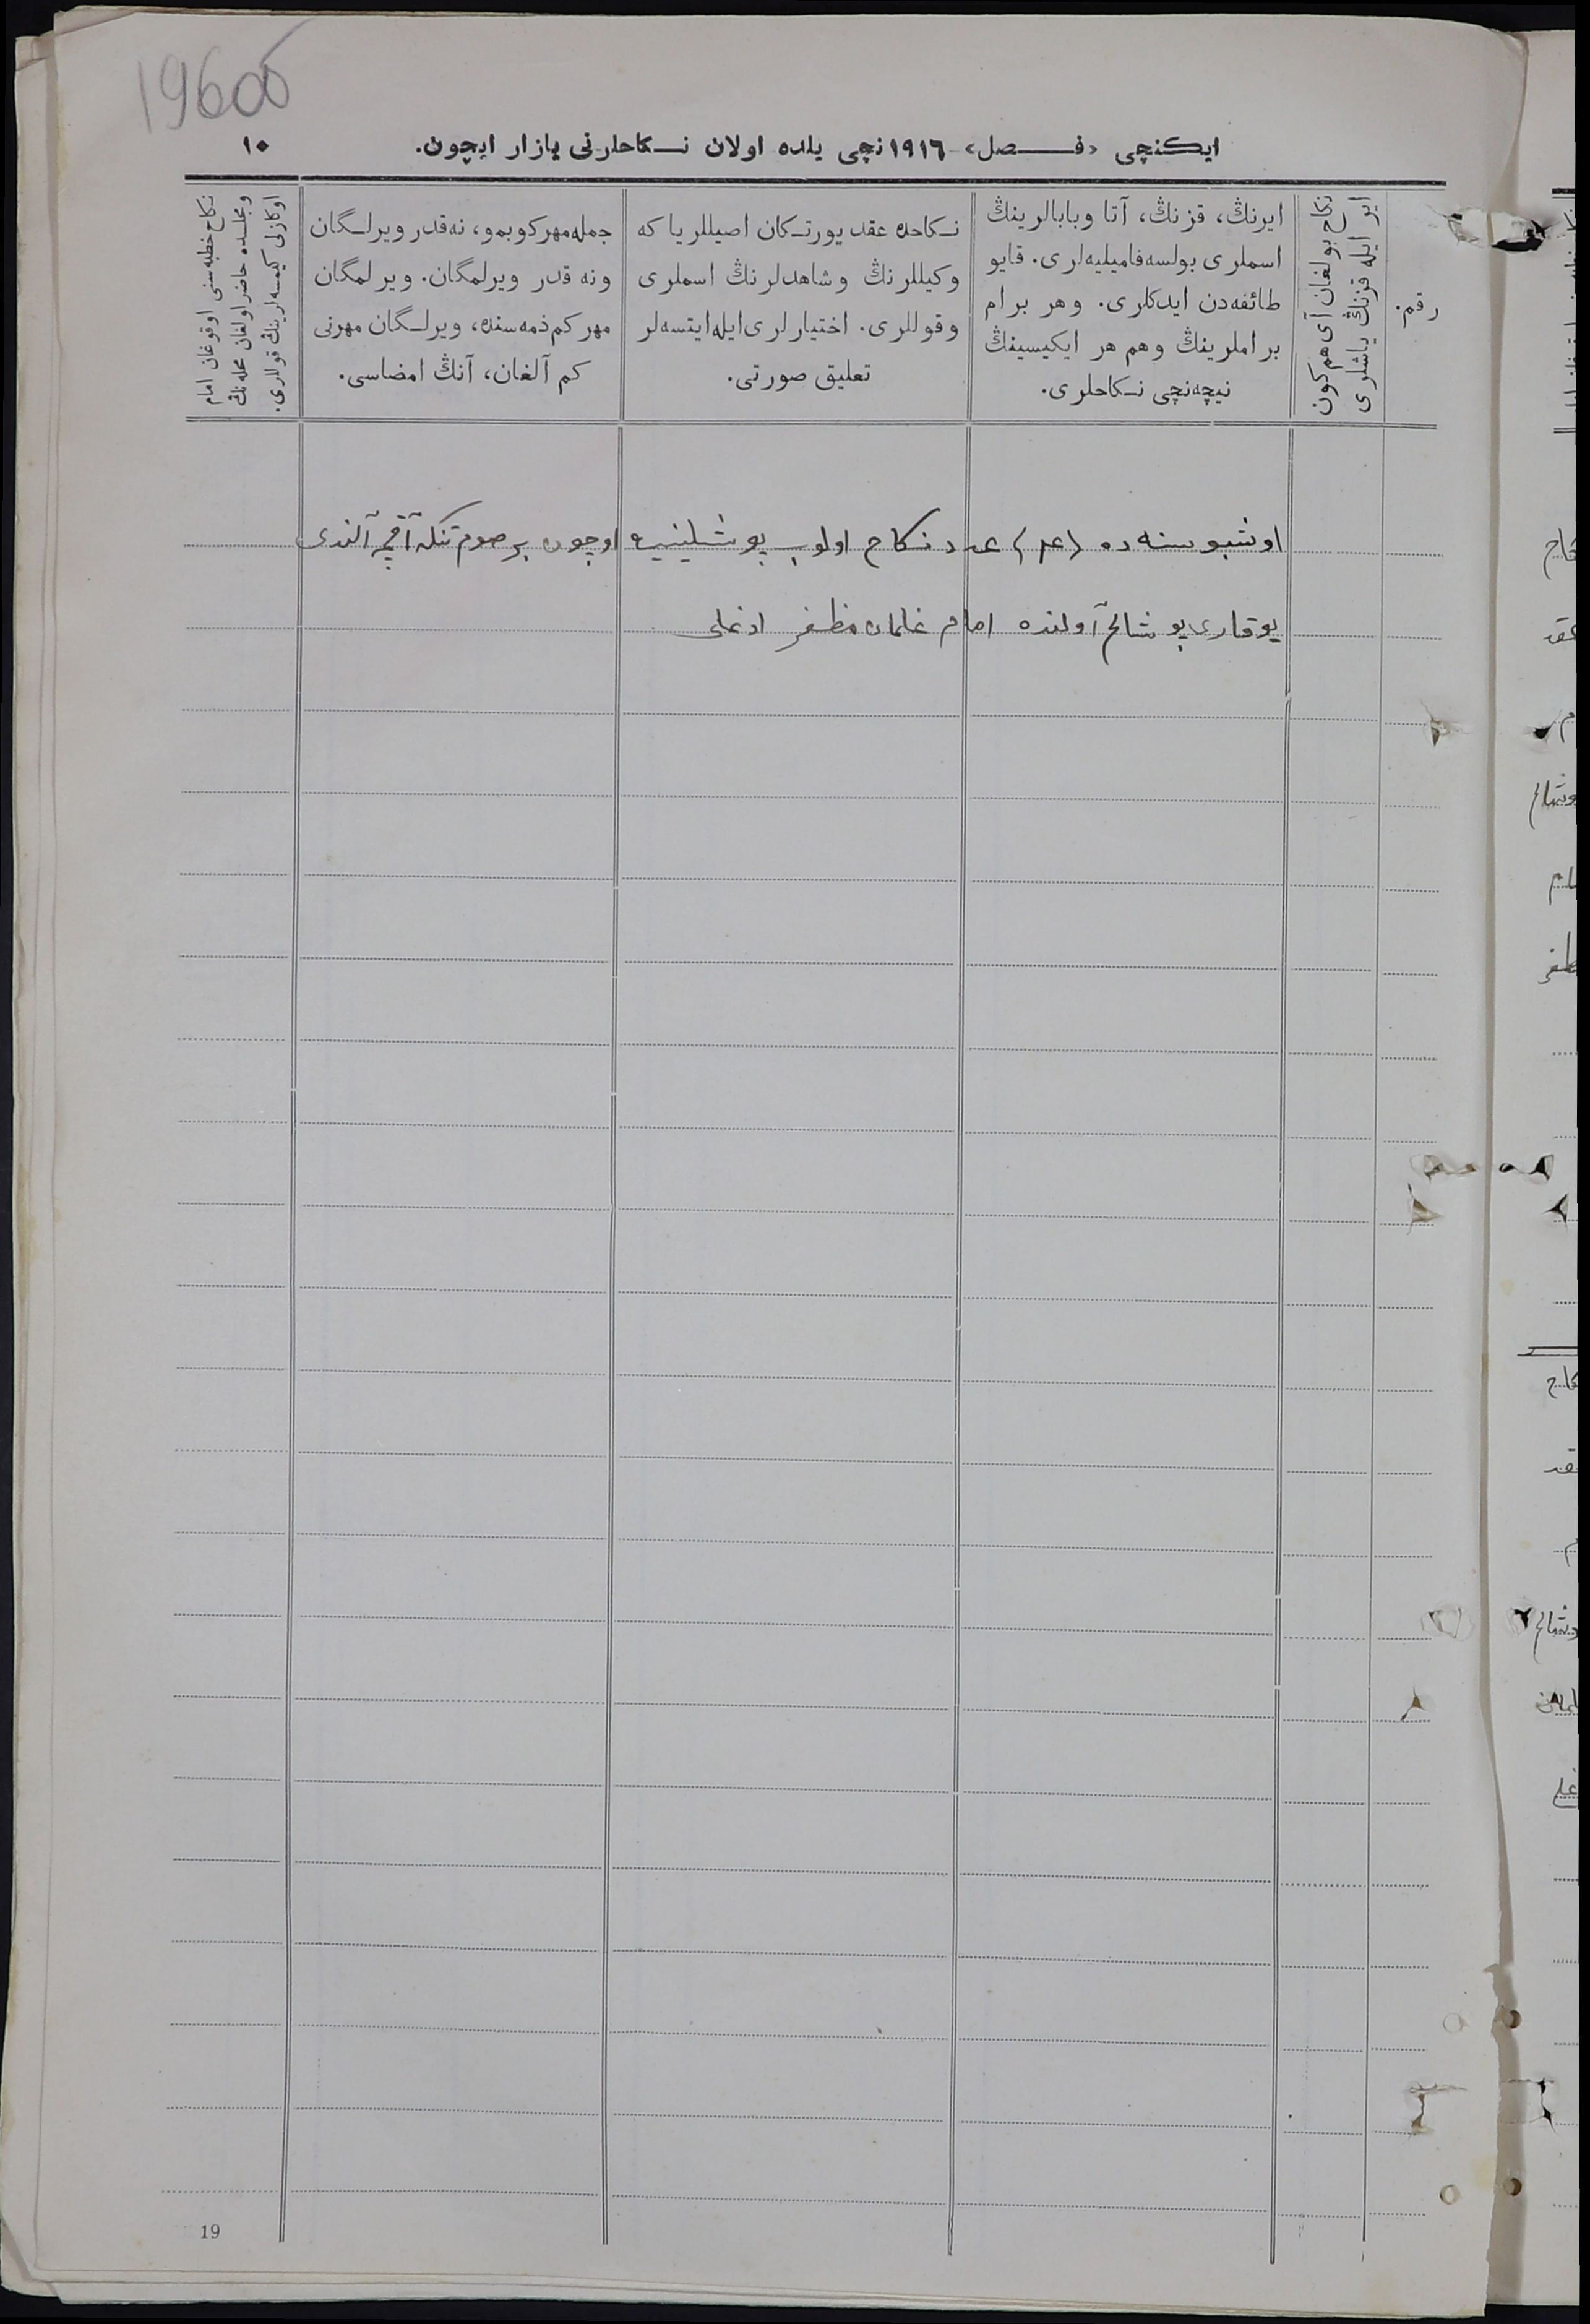 1960об
١٠
ایكنچی «فـــصل» ١٩١٦نچی یلده اولان نـكاحلرنی یازار ایچون.
رقم.
نكاح بولغان آی هم كون
ایر ایله قزنڭ یاشلری
ایرنڭ، قزنڭ، آتا وبابالرینڭ
اسملری بولسه فامیلیه‌لری. قایو
طائفه‌دن ایدكلری. وهر برام
براملرینڭ وهم هر ایكیسینڭ
نیچه‌نچی نـكاحلری.
نـكاحده عقد یورتـكان اصیللر یا كه
وكیللرنڭ وشاهدلرنڭ اسملری
وقوللری. اختیارلری ایله ایتسه‌لر
تعلیق صورتی.
جمله مهر كوبمو، نه‌قدر ویرلـگان
ونه قدر ویرلمگان. ویرلمگان
مهر كم ذمه‌سنده، ویرلـگان مهرنی
كم آلغان، آنڭ امضاسی.
نكاح خطبه‌سنی اوقوغان امام
ومجلسده حاضر اولغان محله‌نڭ
اوكازلی كیمسه‌لرینڭ قوللری.
اوشبو سنه ده عدد نكاح اولوب پوشلینیه اوچون بر صوم تنكه آقچه آلندی
یوقاری پوشالم آولنده امام غلمان مظفر اوغلی
19